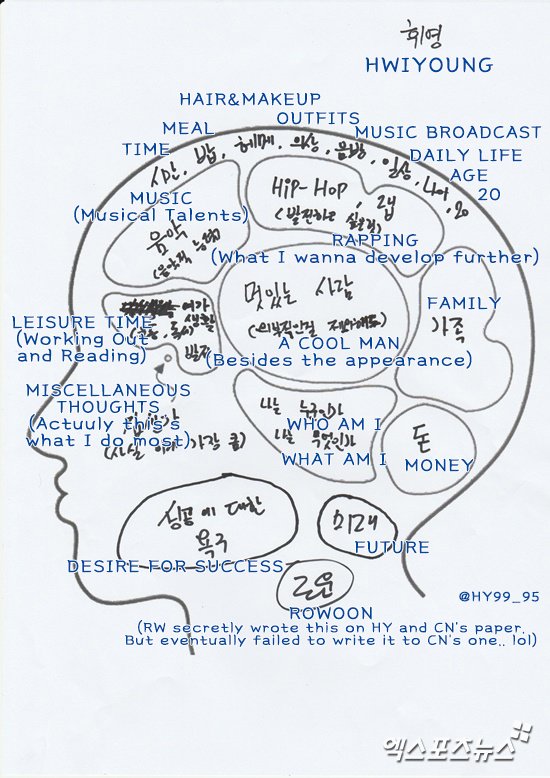 휘영
HWIYOUNG
HAIR&MAKEUP
OUTFITS
MEAL
MUSIC BROADCAST
TIME
DAILY LIFE
AGE
20
시간, 밥, 헤메, 의상, 음방, 일상, 나이, 20
MUSIC
(Musical Talents)
음악
(음악적 능력)
HiP-HoP, 랩
(발전하고 싶은것)
RAPPING
(What I wanna develop further)
멋있는 사람
A COOL MAN
(Besides the appearance)
FAMILY
가족
여가 생활
(운동, 독서)
발전
LEISURE TIME
(Working Out
and Reading)
MISCELLANEOUS
THOUGHTS
(Actuuly this's
what I do most)
(사실 이게 가장 큼)
나는 누구인가
WHO AM I
나는 무엇인가
WHAT AM I
돈
MONEY
성공에 대한
욕구
DESIRE FOR SUCCESS
미래
FUTURE
로운
ROWOON
(RW secretly wrote this on HY and CN's paper.
But eventually failed to write it to CN's one.. lol)
@HY99_95
엑스포츠뉴스